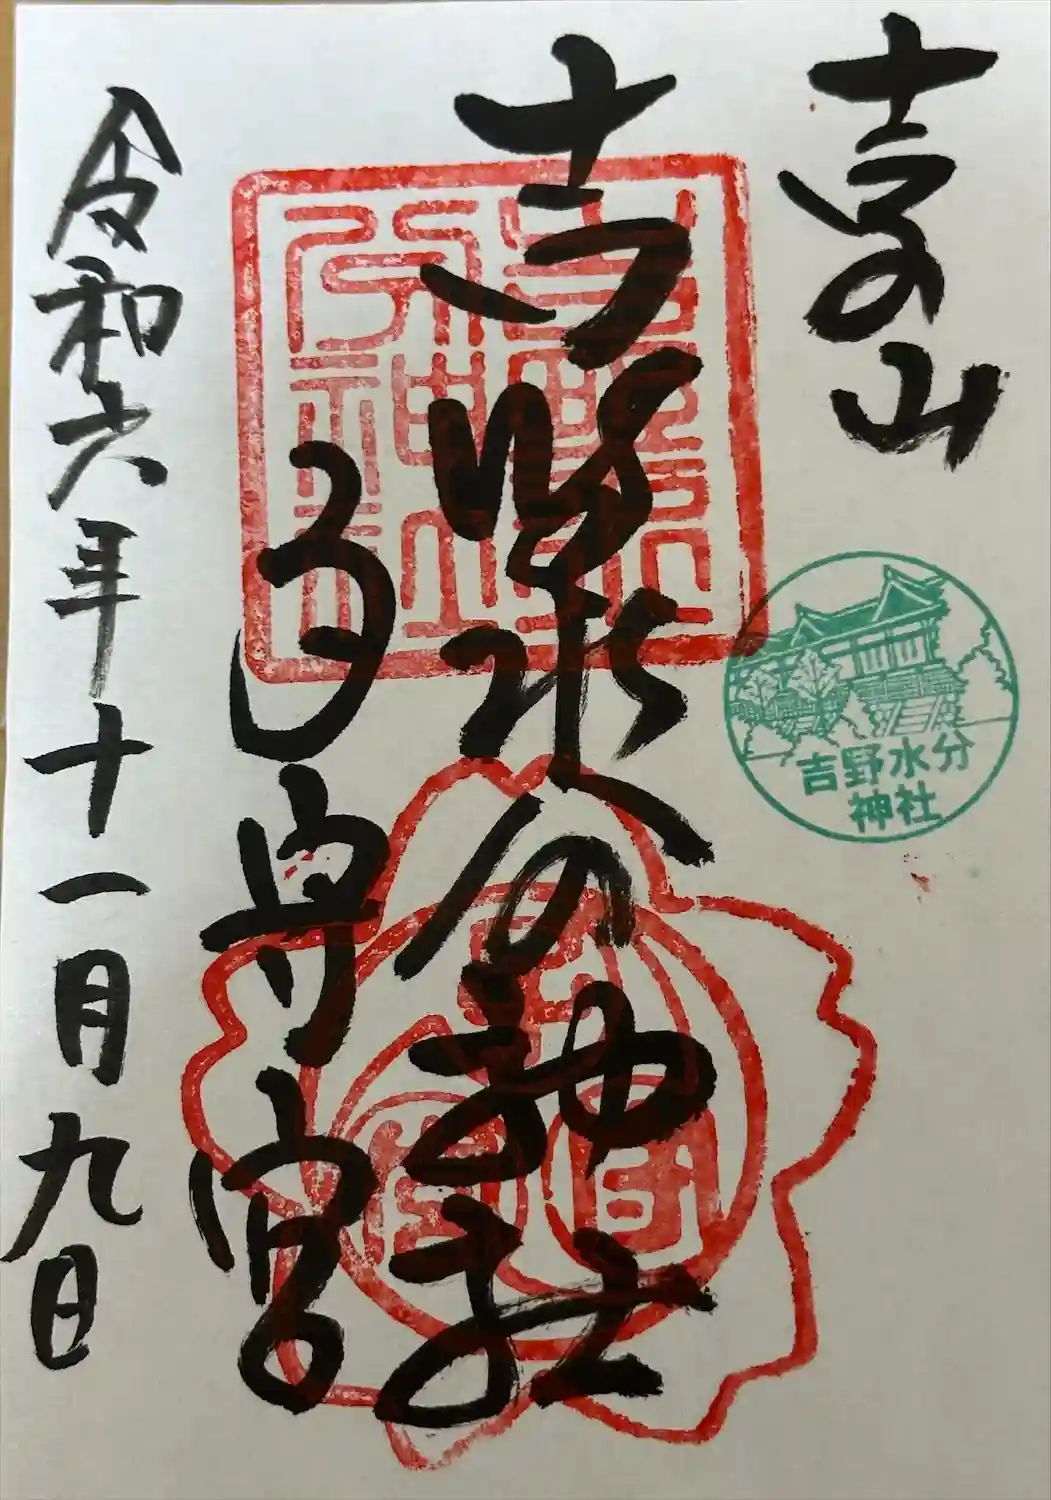 吉の山
吉野水分神社
子守宮
令和六年十一月九日
吉野水分
神社